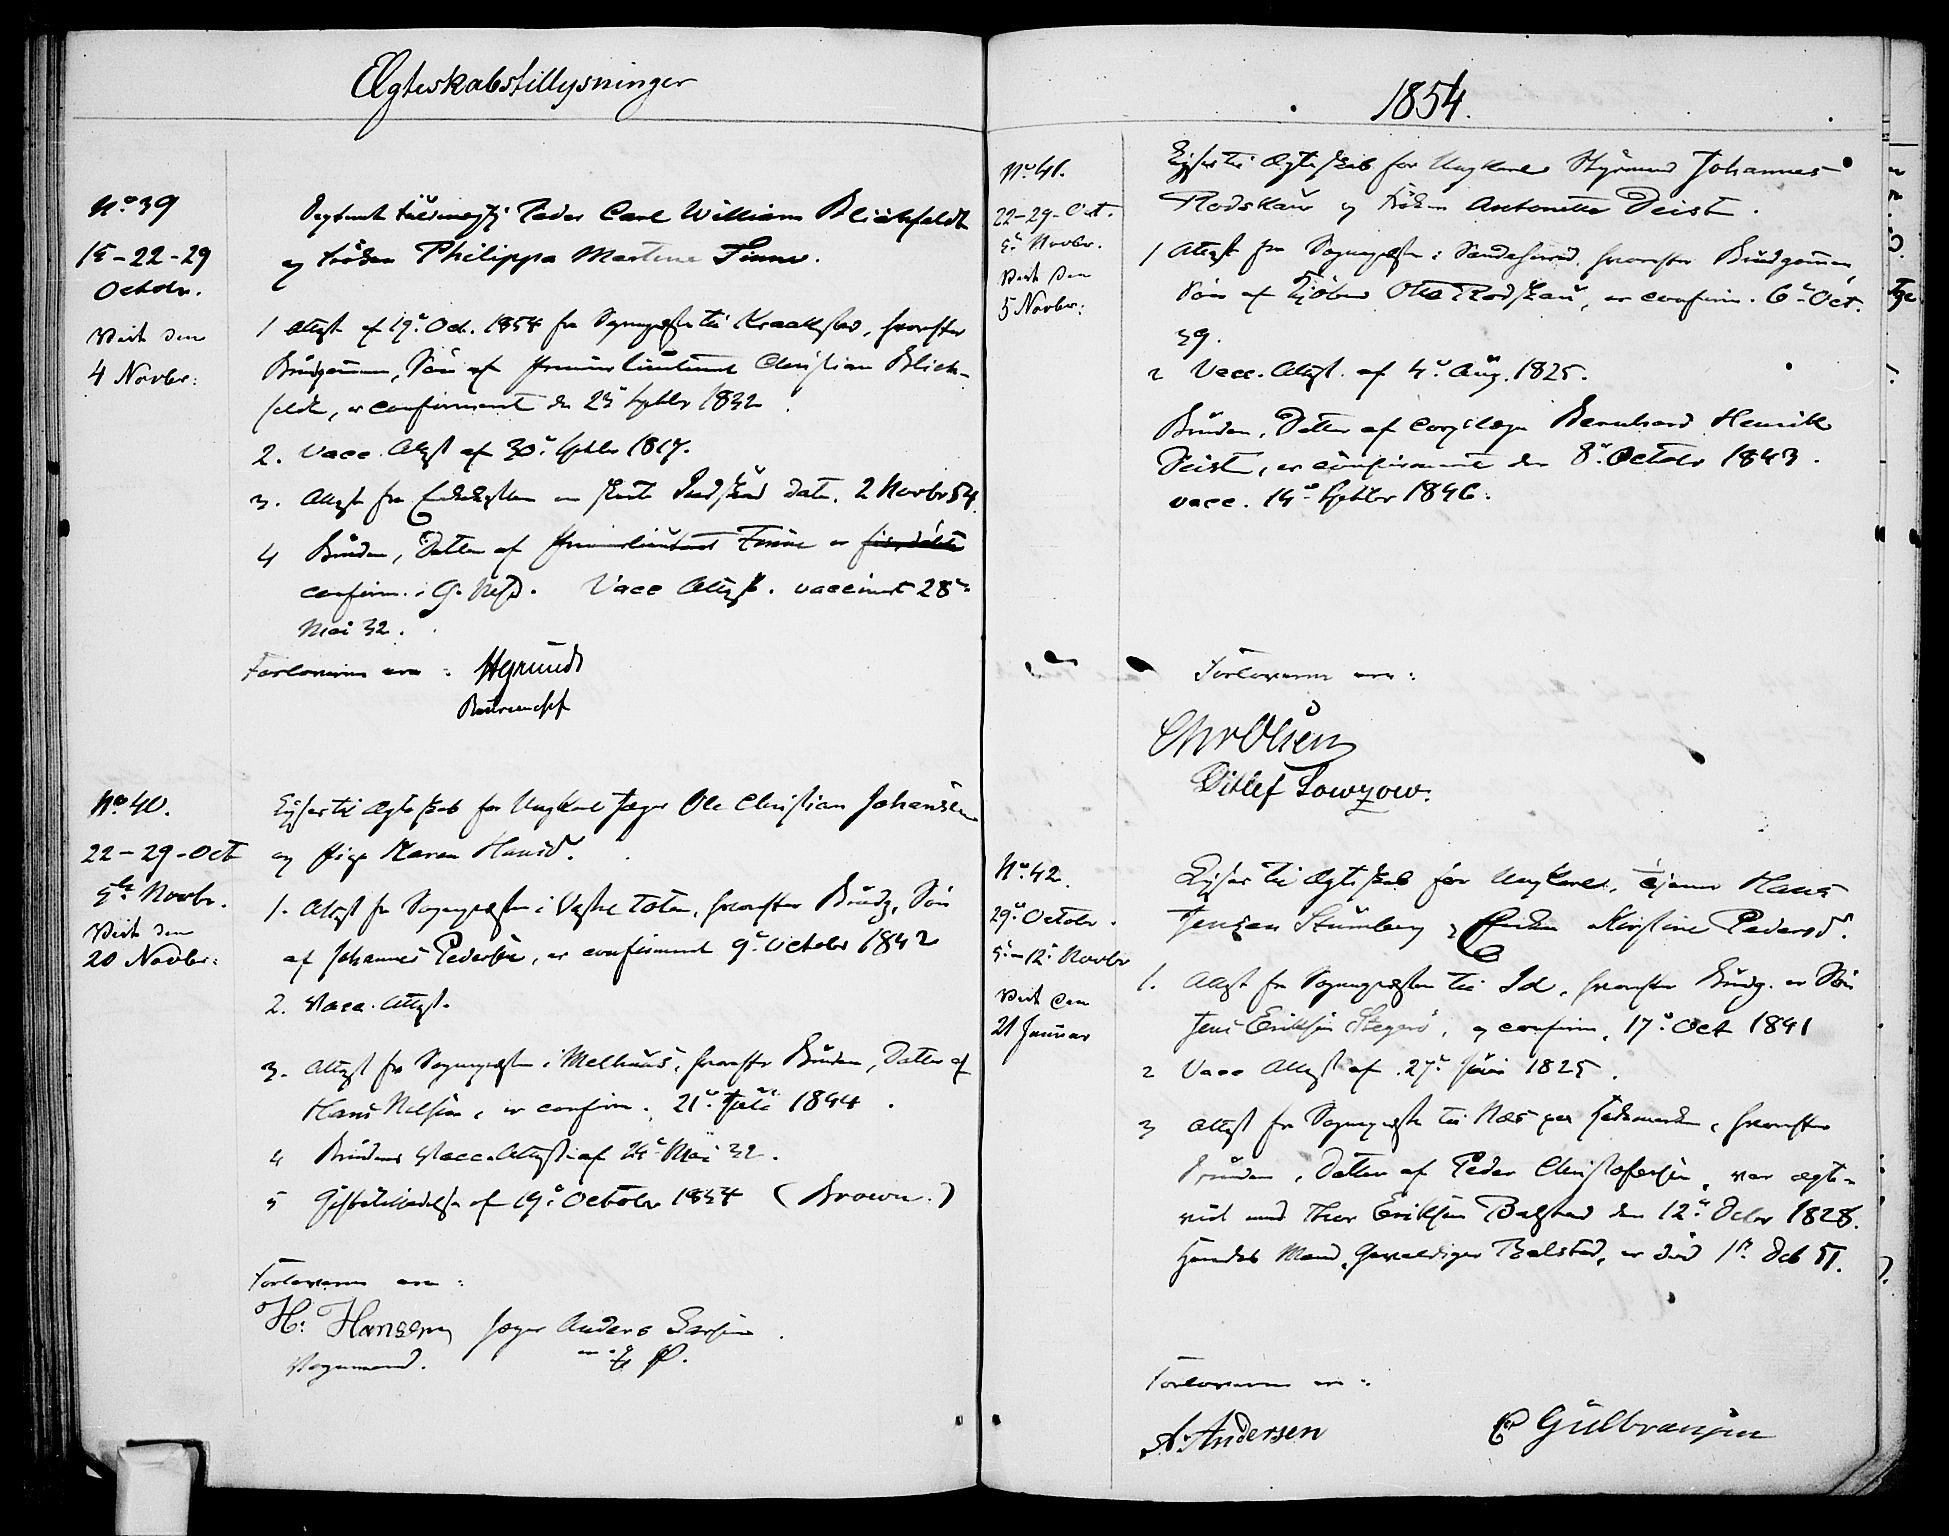 Ægteskabstillysninger
No 39
15-22-29
Octobr.
Viet den
4 Novbr:
Fuldmegtig Peder Carl William Blichfeldt
og Frøken Philippa Martine Finne.
1 Attest af 19de Oct. 1854 fra Sognepræsten til Kraakstad, hvorefter
Brudgommen, Søn af Premierlieutenant Christian Blich-
feldt, er confirmeret den 23de Septbr 1832.
2. Vacc. Attest af 30de Septbr 1817.
3. Attest fra Enkekassen om skeet Indskud dat. 2 Novbr 54.
4 Bruden, Datter af Premierlieutenant Finne er
confirm. i G. Vacc Attest. vaccineret 28de
Mai 32.
Forloverne ere: HGrundt
No 40.
22-29-Oct
5te Novbr.
Viet den
20 Novbr:
Lyser til Ægteskab for Ungkarl Jæger Ole Christian Johansen
og Pige Maren Hansd.
1. Attest fra Sognepræsten i Vestre Toten, hvorefter Brudg., Søn
af Johannes Pedersen, er confirmeret 9de October 1842
2. Vacc. Attest.
3. Attest fra Sognepræsten i Melhuus, hvorefter Bruden, Datter af
Hans Nilsen, er confirm. 21de Juli 1844.
4 Brudens Vacc. Attest af 24de Mai 32.
5 Giftetilladelse af 19de October 1854 (Brown.)
Forloverne ere:
H: Hansen Jæger Anders Larsen
Vognmand. m. P.
1854.
No 41.
22-29-Oct.
5te Novbr.
Viet den
5 Novbr:
Lyser til Ægteskab for Ungkarl Styrmand Johannes
Rodskau og Frøken Antonette Deist.
1 Attest fra Sognepræsten i Sandeherred, hvorefter Brudgommen,
Søn af Otto Rodskau, er confirm. 6te Oct.
39.
2 Vacc. Attest. af 4de Aug. 1825.
Bruden, Datter af Corpslæge Bernhard Henrik
Deist, er confirmeret den 8de October 1843.
vacc. 14de Septbr 1846.
Forloverne ere:
Chr Olsen
Ditlef Lowzow.
No 42.
29de Octobr.
5te-12te Novbr
Viet den
21 Januar
Lyser til Ægteskab for Ungkarl, Tjener Hans
Jensen Stumberg og Enken Kirstine Pedersd.
1. Attest fra Sognepræsten til Id, hvorefter Brudg. er Søn
Jens Eriksen, og confirm. 17de Oct 1841
2 Vacc Attest af 27de Juni 1825.
3 Attest fra Sognepræsten til Næs paa Hedemarken, hvorefter
Bruden, Datter af Peder Christofersen, var ægte-
viet med Thor Eriksen Balstad den 12te Decbr 1828.
Hendes Mand, Gevaldiger Balstad, er død 1ste Dcb 51.
Forloverne ere:
A. Andersen
P Gulbransen